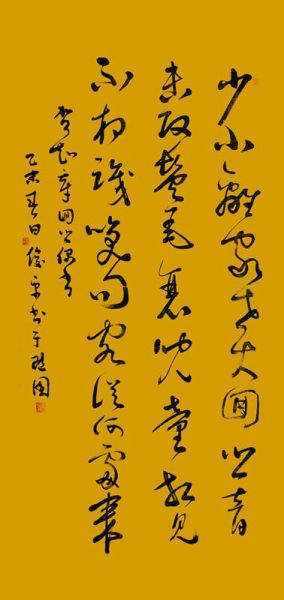 少小離家老大回鄉音
未改鬢毛衰兒童相見
不相識笑問客從何處來
賀知章回鄉偶書
乙未春日俊平书于園